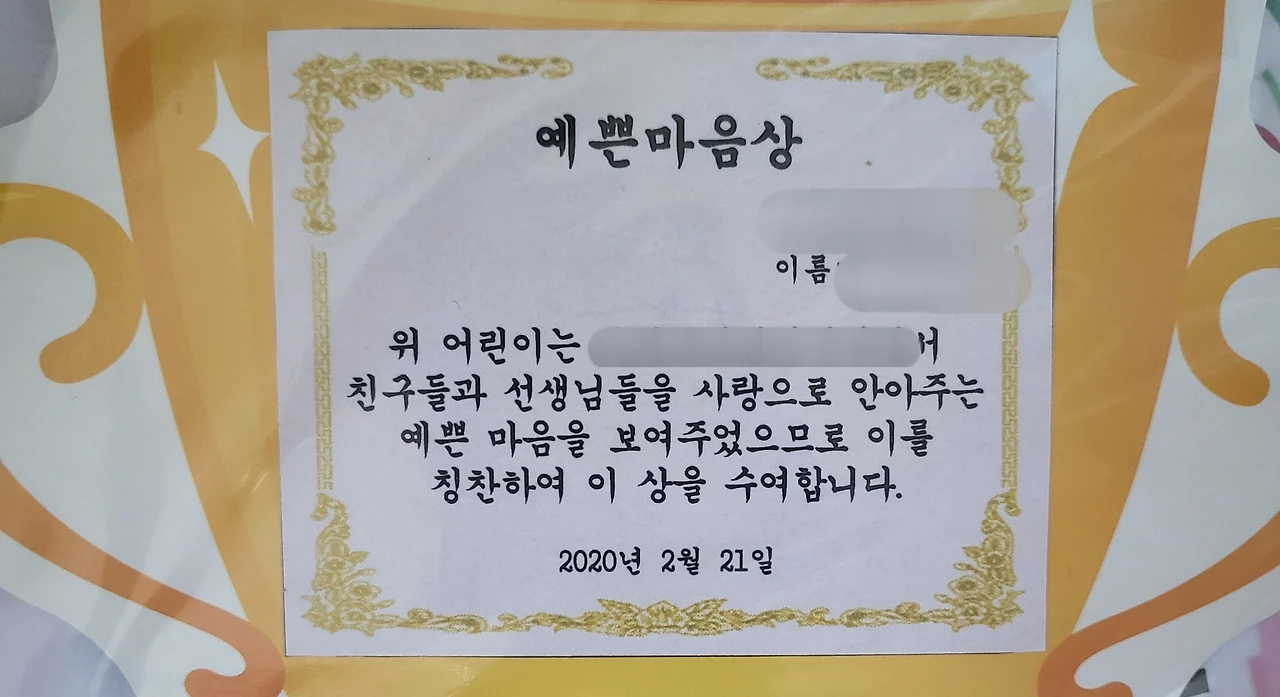 예쁜마음상
이름
위 어린이는
친구들과 선생님들을 사랑으로 안아주는
예쁜 마음을 보여주었으므로 이를
칭찬하여 이 상을 수여합니다.
2020년 2월 21일